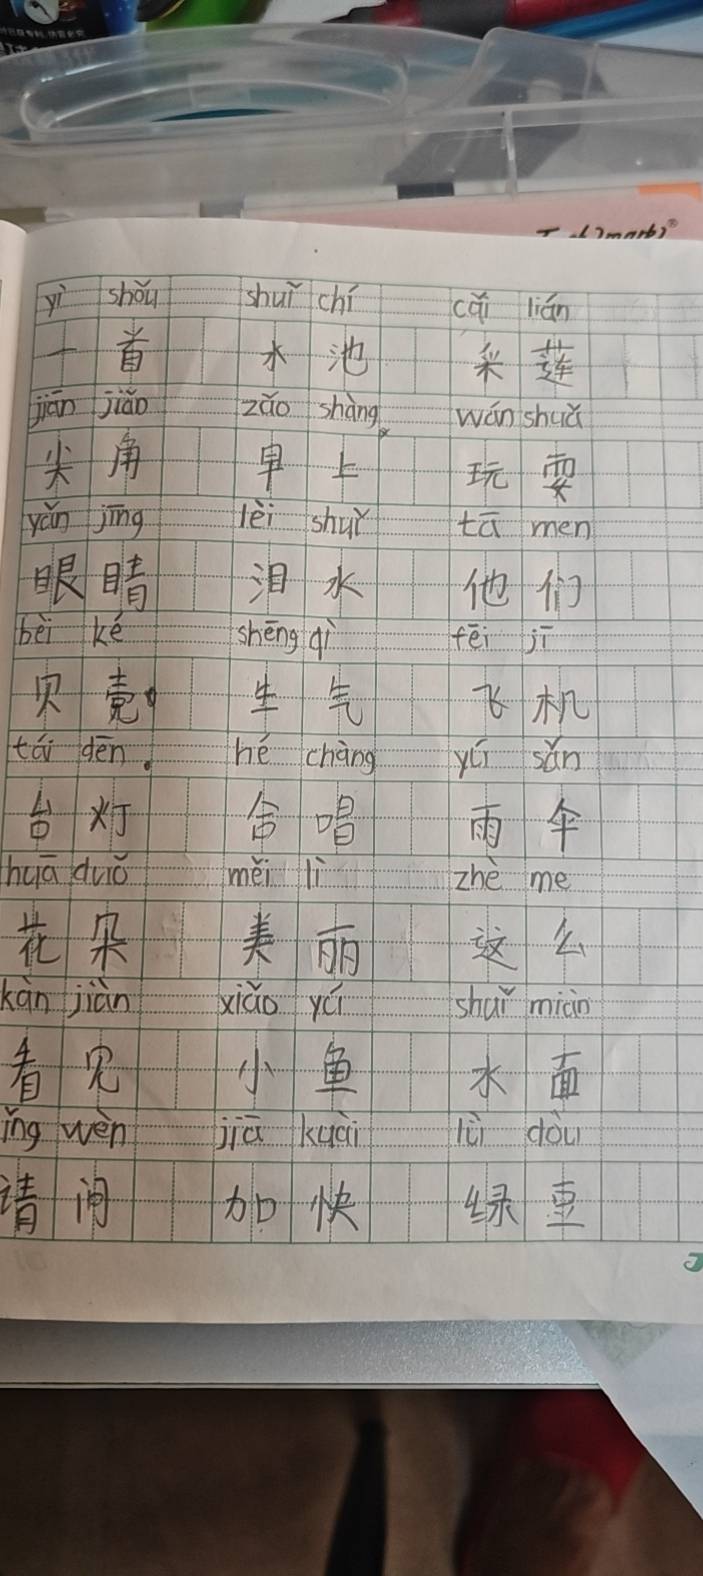 yì shǒu shuǐ chí cǎi lián
一首 水池 采莲
jiān jiǎo zǎo shàng wán shuǎ
尖角 早上 玩耍
yǎn jīng lèi shuǐ tā men
眼睛 泪水 他们
bèi ké shēng qì fēi jī
贝壳 生气 飞机
tái dēn hé chàng yǔ sǎn
台灯 合唱 雨伞
huā duǒ měi lì zhè me
花朵 美丽 这么
kàn jiàn xiǎo yú shuǐ miàn
看见 小鱼 水面
ǐng wèn jiā kuài lǜ dòu
请问 加快 绿豆